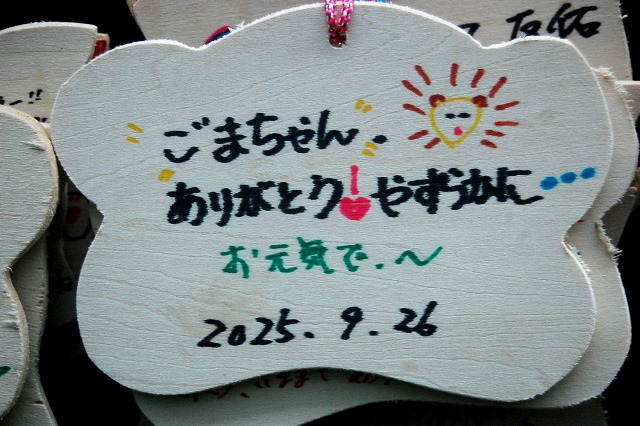 ごまちゃん.
ありがとう やすらかに・・・
お元気で.〜
2025.9.26